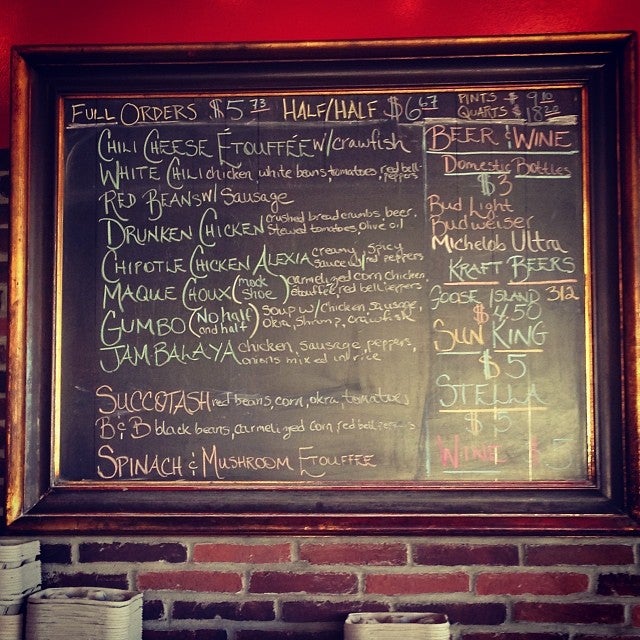 FULL ORDERS $5.73 HALF/HALF $6.67
PINTS $ 9.10
QUARTS $ 18.20
CHILI CHEESE ÉTOUFFÉE w/crawfish
WHITE CHILI chicken, white beans, tomatoes, red bell peppers
RED BEANS w/ Sausage
DRUNKEN CHICKEN crushed bread crumbs, beer,
stewed tomatoes, olive oil
CHIPOTLE CHICKEN ALEXIA creamy, spicy
sauce w/ red peppers
MAQUE CHOUX (mock shoe) carmelized corn chicken
etouffee, red bell peppers
GUMBO (No half and half) soup w/ chicken, sausage,
okra, shrimp, crawfish
JAMBALAYA chicken, sausage, peppers,
onions mixed in rice
SUCCOTASH red beans, corn, okra, tomatoes
B & B black beans, carmelized corn, red bell peppers
SPINACH & MUSHROOM ETOUFFÉE
BEER & WINE
Domestic Bottles
$3
Bud Light
Budweiser
Michelob Ultra
KRAFT BEERS
GOOSE ISLAND 312
$4.50
SUN KING
$5
STELLA
$5
WINE $5